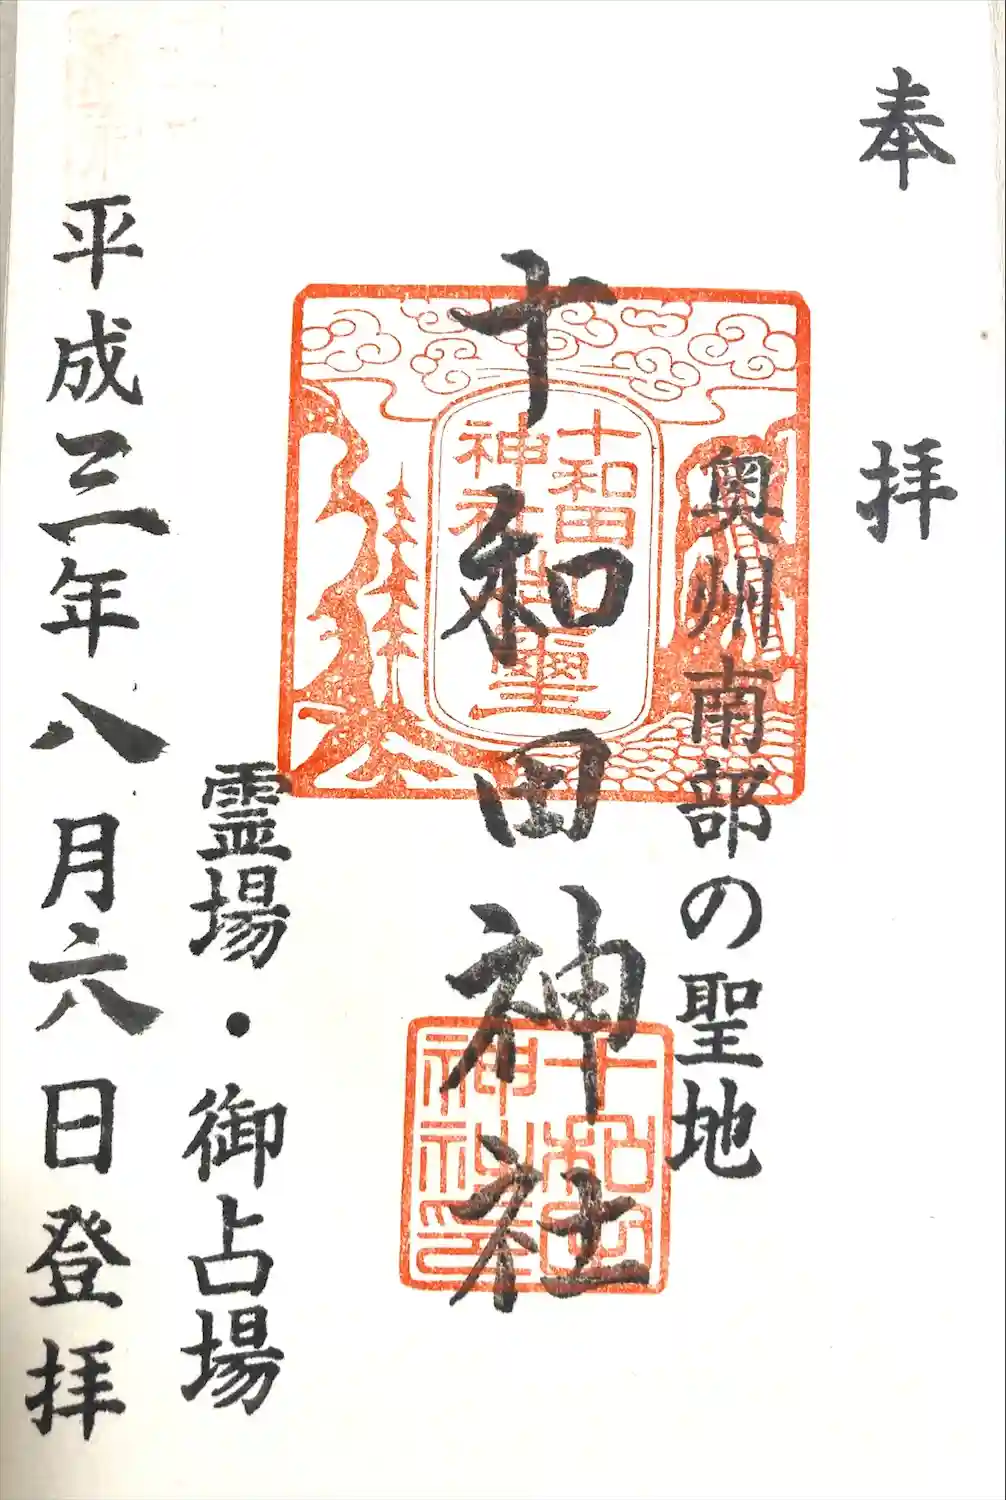 奉拝
奥州南部の聖地
十和田神社
十和田
神社
御璽
十和田
神社印
霊場・御占場
平成三一年八月六日登拝